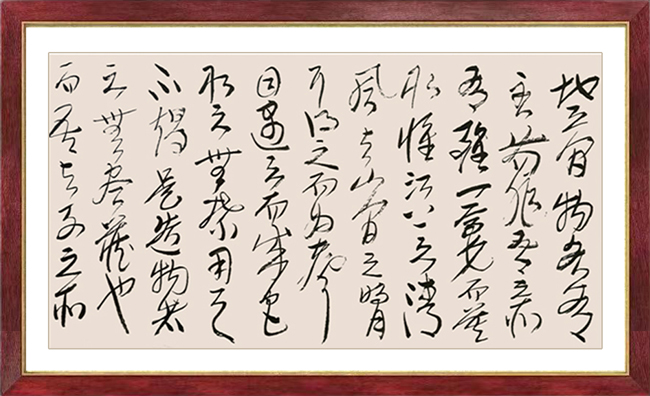 地之間物各有
主苟非吾之所
有雖一毫而莫
取惟江上之清
風与山間之明月
耳得之而為聲
目遇之而成色
取之無禁用之
不竭是造物者
之無盡藏也
而吾与子之所